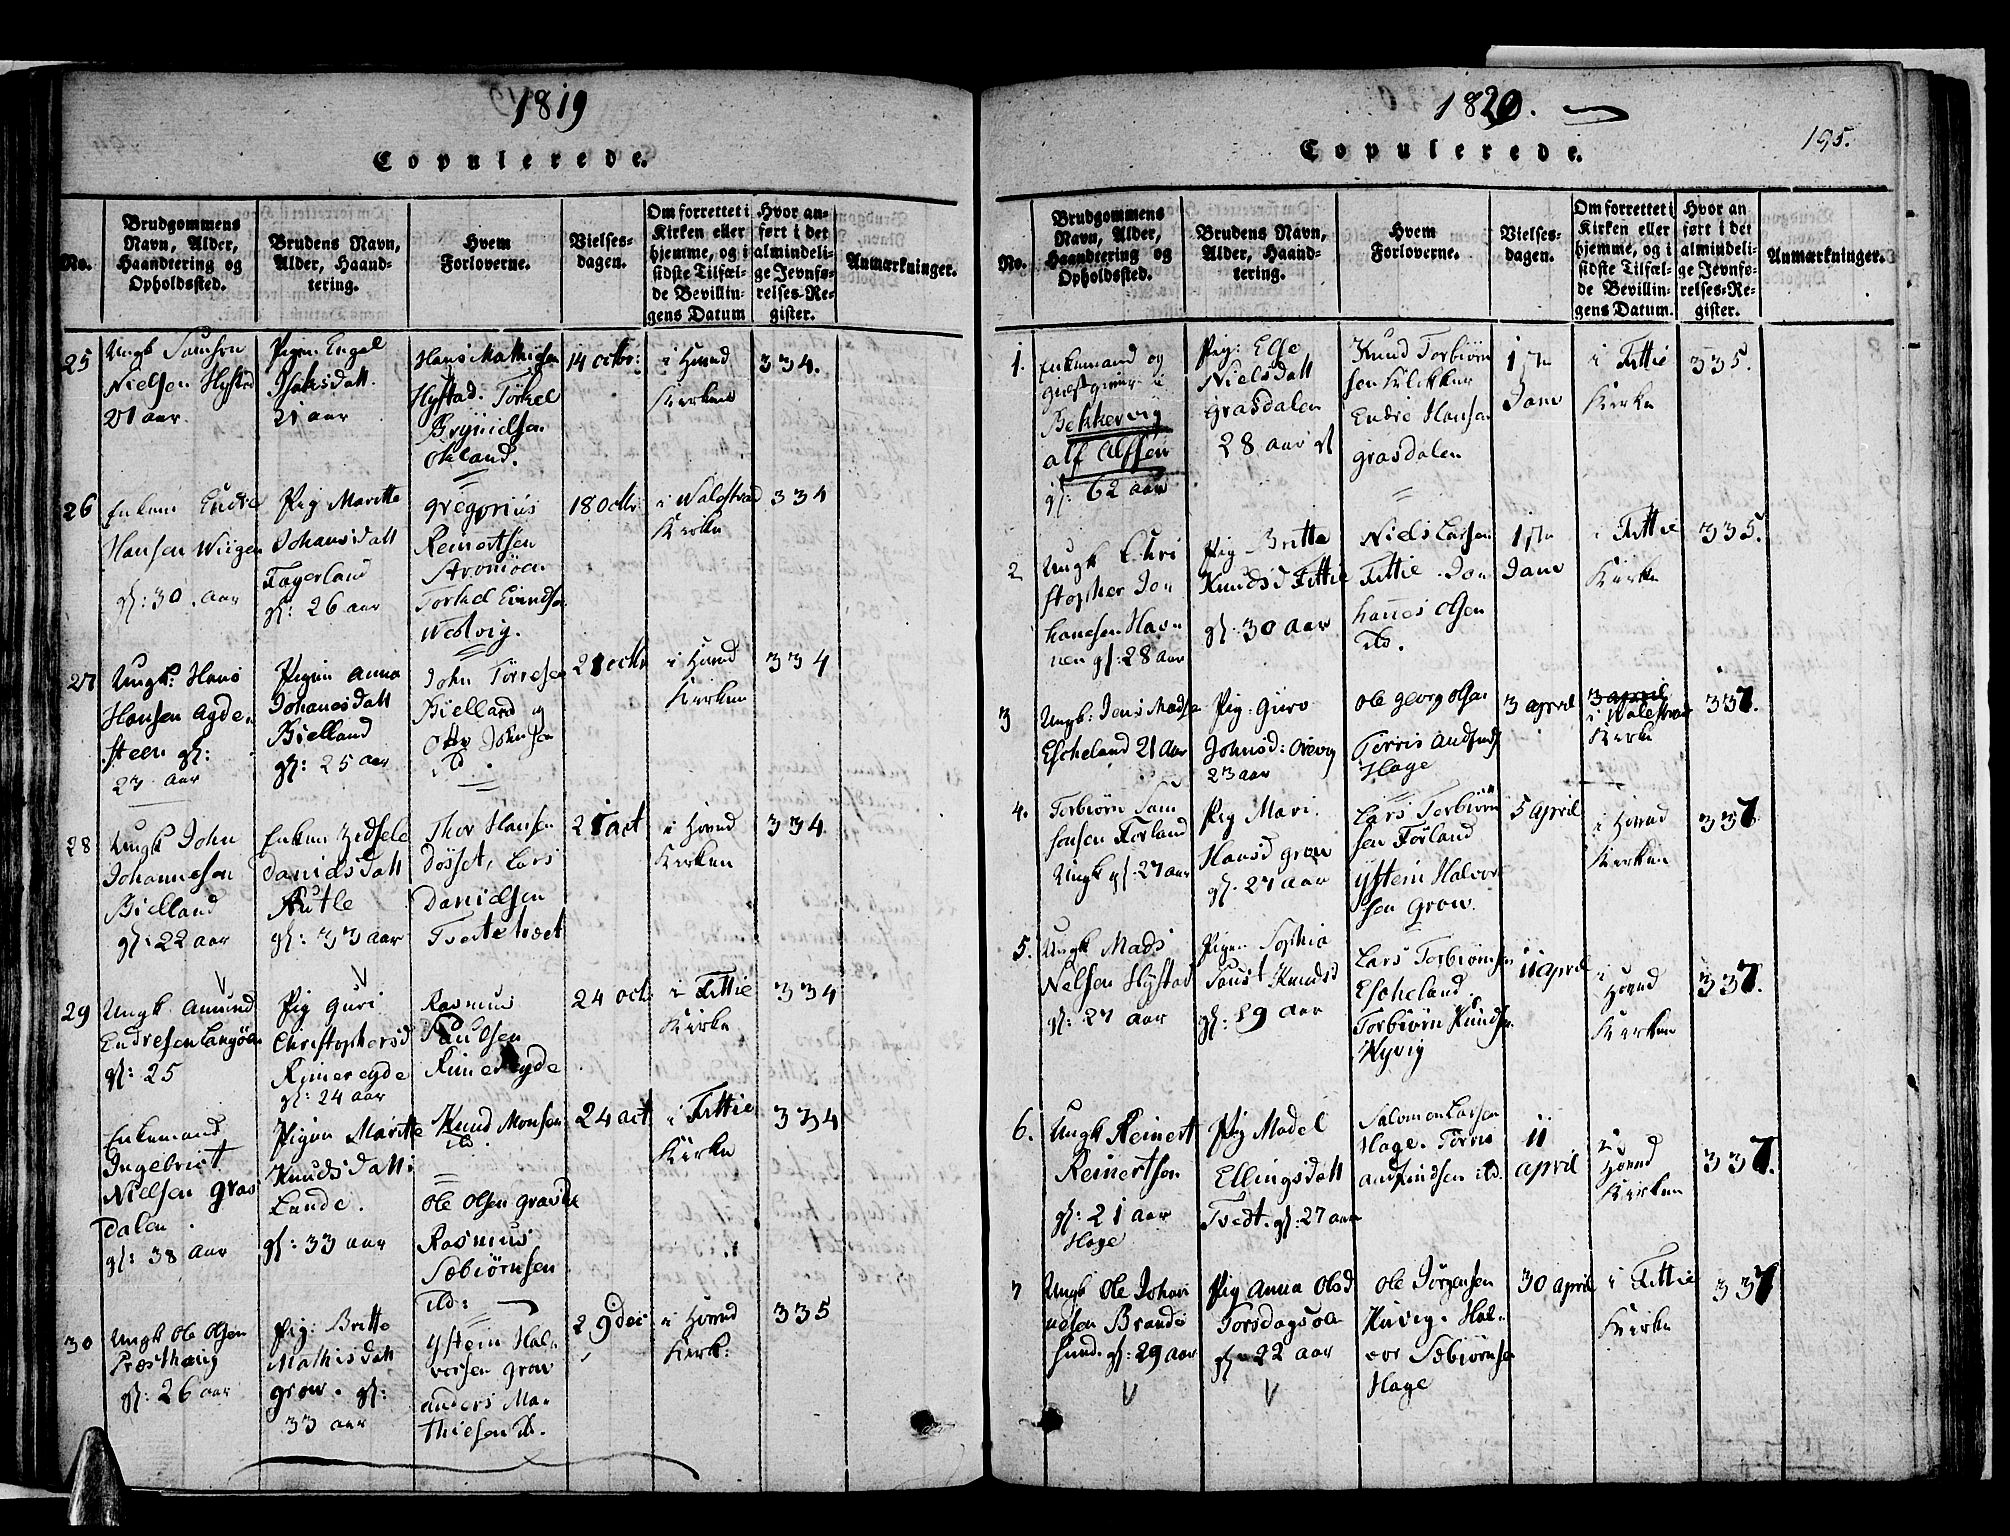 1819
Copulerede.
No.
Brudgommens
Navn, Alder,
Haandtering og
Opholdssted.
Brudens Navn,
Alder, Haand-
tering.
Hvem
Forloverne.
Vielses-
dagen.
Om forrettet i
Kirken eller
hjemme, og i
sidste Tilfæl-
de Bevillin-
gens Datum
Hvor an-
ført i det
almindeli-
ge Jevnfø-
relses-Re-
gister.
Anmærkninger.
25
Ungk Samson
Nielsen Hystad
21 aar.
Pigen Engel
Isaksdatt.
21 aar
Hans Mathisen
Hystad. Törkel
Brynielsen
Okland.
14 octbr:
i Hovud
Kirken
334.
26
Enkem Endre
Hansen Wiigen
gl: 30. aar
Pig Maritte
Johansdatt
Fagerland
gl: 26 aar
Gregorius
Reinertsen
Strömöen
Torkel Eivindsen
Westvig.
18 octbr
i Walestrad
Kirke
334
27
Ungk: Hans
Hansen Agde-
steen gl:
23 aar
Pigen Anna
Johanesdatt
Bielland
gl: 25 aar
John Törresen
Bielland og
Otto Johnsen
ib.
21 octbr
i Hovud
Kirken
334
28
Ungk John
Johannesen
Bielland
gl: 22 aar
Enken Zidsele
Danielsdatt
Rutle
gl: 33 aar
Thor Hansen
Døsset, Lars
Danielsen
Tvertetræet
21 oct
i Hovud
Kirken
334
29
Ungk Amund
Endresen Langöen
gl: 25
Pig Guri
Christophersd
Rimereyde
gl: 24 aar
Rasmus
Paulsen
Rimereyde
24 oct:
i Fittie
Kirke
334
Enkemand
Ingebrict
Nielsen Gras
dalen.
gl: 38 aar
Pigen Maritte
Knudsdatt:
Lunde.
gl: 33 aar
Knud Monsen
ib.
Ole Olsen Grasda
Rasmus
Sæbiörnsen
ibd:
24 oct
i Fittie
Kirke
334
30
Ungk Ole Olsen
Præsthoug
gl: 26 aar
Pig: Britte
Mathisdatt
Grow. gl:
33 aar
Ystein Hal-
versen Grow
Anders Ma-
thiesen ib.
29 dec
i Hovud
Kirk:
335
1820.
195.
Copulerede.
No.
Brudgommens
Navn, Alder,
Haandtering og
Opholdssted.
Brudens Navn,
Alder, Haand-
tering.
Hvem
Forloverne.
Vielses-
dagen.
Om forrettet i
Kirken eller
hjemme, og i
sidste Tilfæl-
de Bevillin-
gens Datum.
Hvor an
ført i det
almindeli-
ge Jevnfø-
relses-Re-
gister.
Anmærkninger.
1.
Enkemand og
giestgiver i
Bekkervig
Alf Alfsen
gl: 62 aar
Pig: Else
Nielsdatt
Grasdalen
28 aar gl
Knud Torbiörn
sen
Endre Hansen
Grasdalen
Janv
i Fittie
Kirke
335.
2
Ungk Chri
stopher Jo
hanesen Hav
nen gl: 28 aar
Pig Britte
Knudsd Fittie
gl: 30 aar
Niels Larsen
Fittie. Jo
hanes Olsen
ib.
Janv
i Fittie
Kirke
335.
3
Ungk: Jens Madsen
Escheland 21 aar
Pig: Guro
Johnsd: Orevig
23 aar
Ole Georg Olsen
Törris Audfinds
Hage
3 april
3 april
i Walestrad
Kirke
337.
4.
Torbiörn Sam
sonsen Förland
Ungk gl: 27 aar
Pig Mari
Hansd Grow
gl: 27 aar
Lars Torbiörn
sen Förland
Ystein Halvor
sen Grow.
5 april
i Hovud
Kirken
337.
5.
Ungk Mads
Nelsen Hystad
gl: 27 aar
Pigen Sophia
Knudsd
gl: 29 aar
Lars Torbiörnsen
Escheland.
Torbiörn Knudsen
Hyvig
11 april
i
Hovud
Kirken
337.
6.
Ungk Reinert
Reinertsen
gl: 21 aar
Hage
Pig Madel
Ellingsdatt
Tvedt. gl: 27 aar
Salomon Larsen
Hage. Törris
Audfindsen ib.
11
april
i
Hovud
Kirken
337.
7
Ungk Ole Johan
nesen Brandé
sund. gl: 29 aar
Pig Anna Olsd
Torsdagsöen
gl 22 aar
Ole Jörgensen
Huvig. Hal-
vor Sæbiörnsen
Hage
30 april
i Fittie
Kirke
337